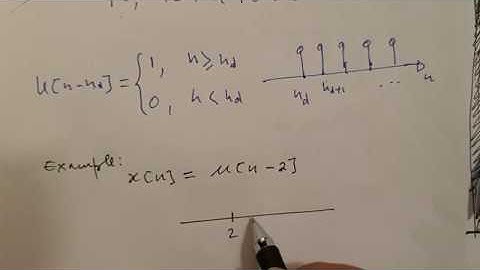 u[n-n_d] = { 1, n ≥ n_d
0, n < n_d
n_d n_d+1 ... n
Example: x[n] = u[n-2]
2